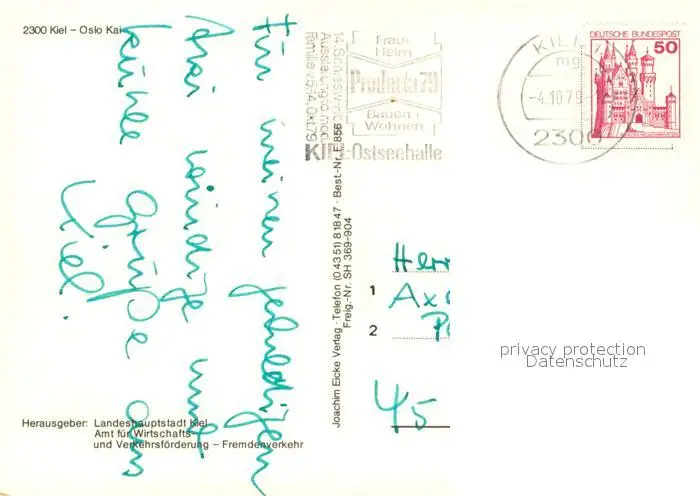 2300 Kiel – Oslo Kai
Für meinen
drei windige und
kühle
Grüße aus
Kiel.
14. Schleswig-Hol
Ausstellung für mod.
Familie v. 5.-14. Okt. 79
Frau
Heim
Producta 79
Bauen
Wohnen
KIEL-Ostseehalle
KIEL
mg
-4.10.79
2300
DEUTSCHE BUNDESPOST
50
Joachim Eicke Verlag · Telefon (0 43 51) 8 18 47 · Best.-Nr. E 856
Freig.-Nr. SH 369-904
Herr
1
Ax
2
45
privacy protection
Datenschutz
Herausgeber: Landeshauptstadt Kiel
Amt für Wirtschafts-
und Verkehrsförderung – Fremdenverkehr